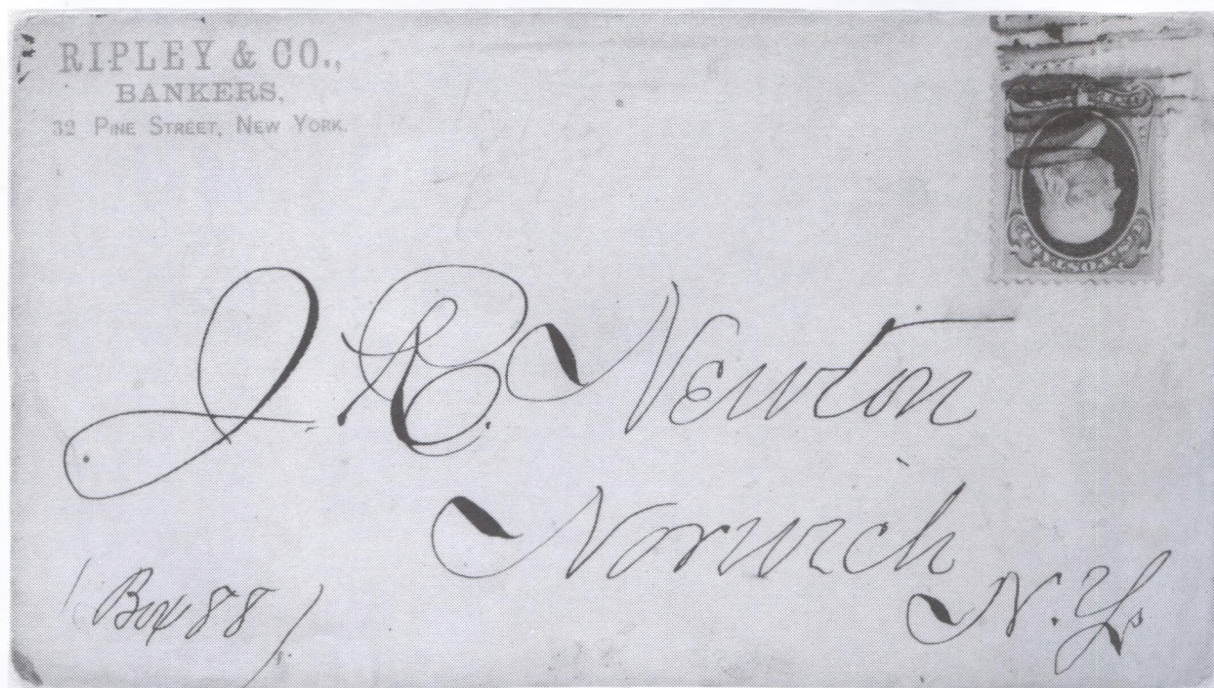 RIPLEY & CO.,
BANKERS,
32 PINE STREET, NEW YORK.
J. C. Newton
Norwich
N.Y.
(Box 88)